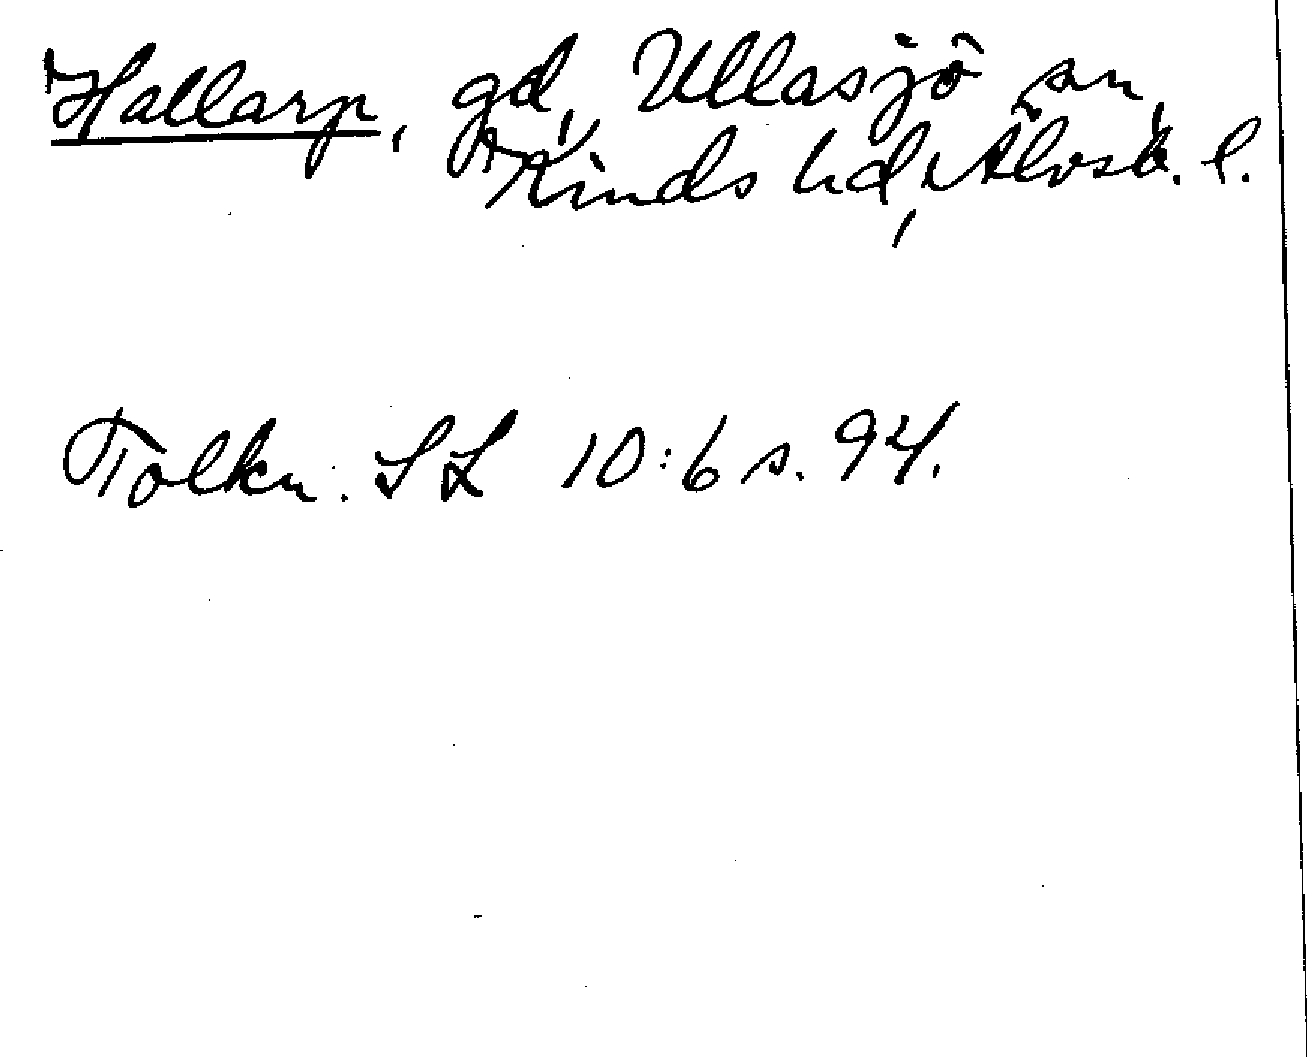 Hallarp, gd, Ullasjö sn,
Kinds hd, Älvsb. l.
Tolkn. SL 10:6 s. 94.